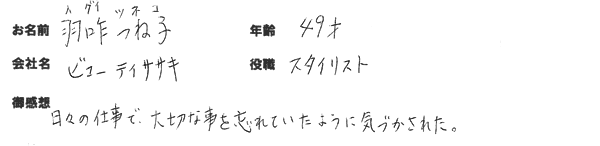 ハダイ ツネコ
お名前 羽咋つね子 年齢 49才
会社名 ビューティササキ 役職 スタイリスト
御感想
日々の仕事で、大切な事を忘れていたように気づかされた。